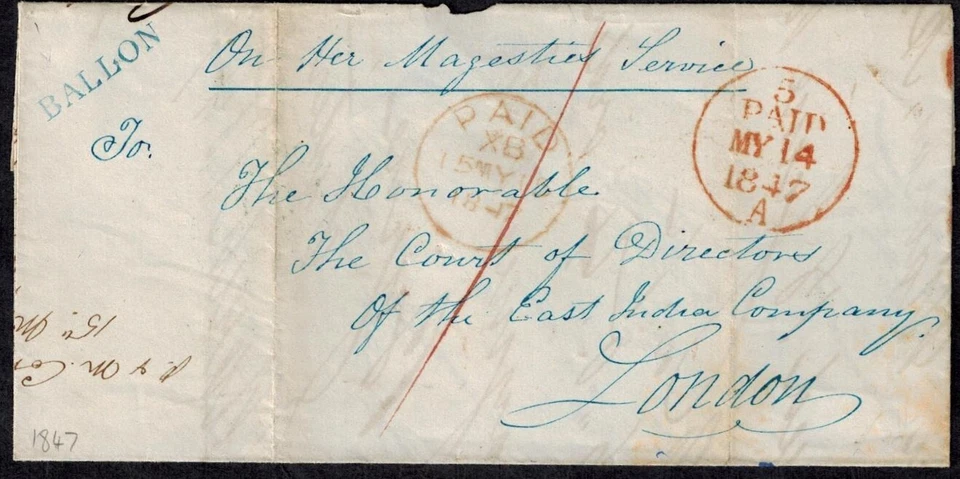 BALLON
On Her Magesties Service
To.
PAID
XB
15MY
1847
5
PAID
MY 14
1847
A
The Honorable
The Court of Directors
Of the East India Company.
London
1847